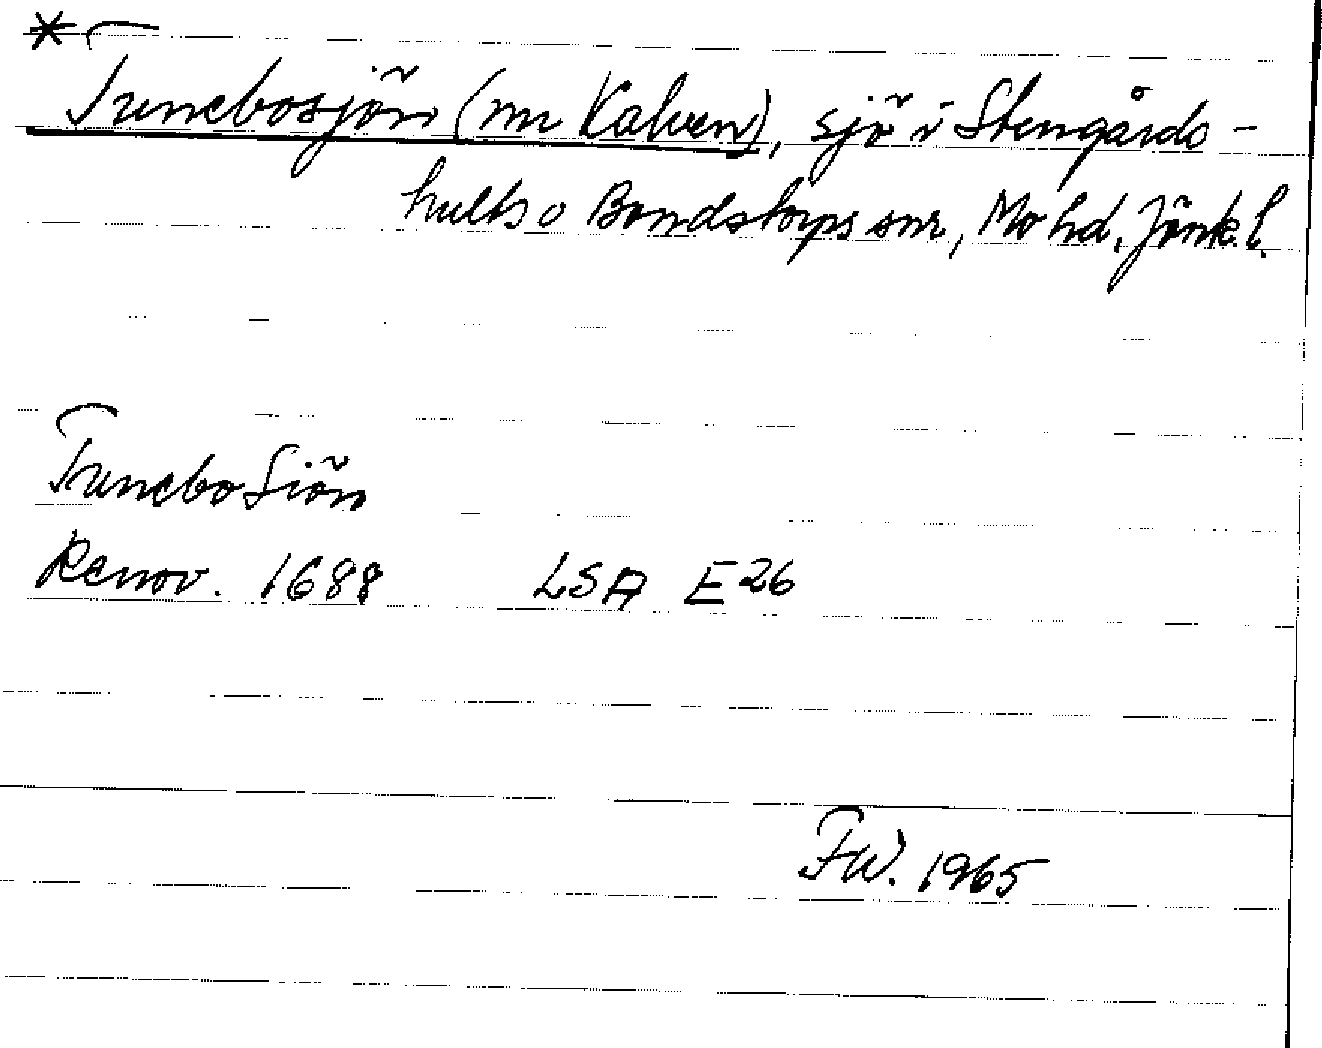 * Tunebosjön (nu Kalven), sjö i Stengårds-
hults o Bondstorps snr, Mo hd, Jönk. l.
Tunebo Siön
Renov. 1688 LSA E26
FW. 1965